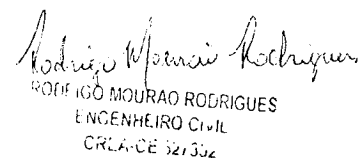 Rodrigo Mourão Rodrigues
RODRIGO MOURAO RODRIGUES
ENGENHEIRO CIVIL
CREA-CE